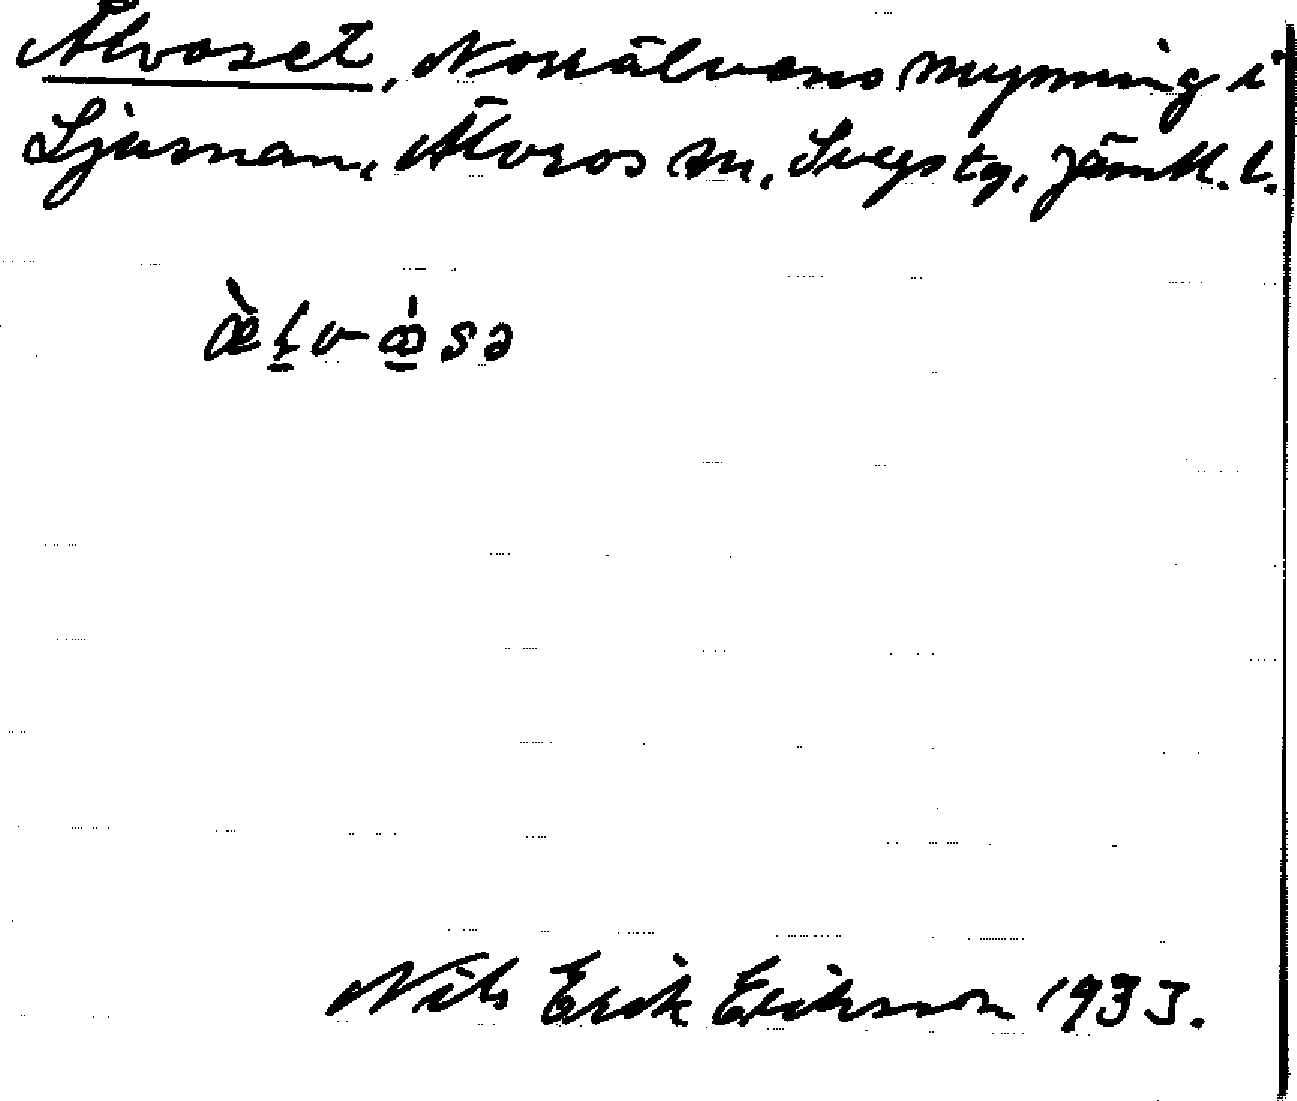 Älvoset, Norrälvens mynning i
Ljusnan, Älvros sn, Svegs tg, Jämtl. l.
Nils Erik Eriksson 1933.